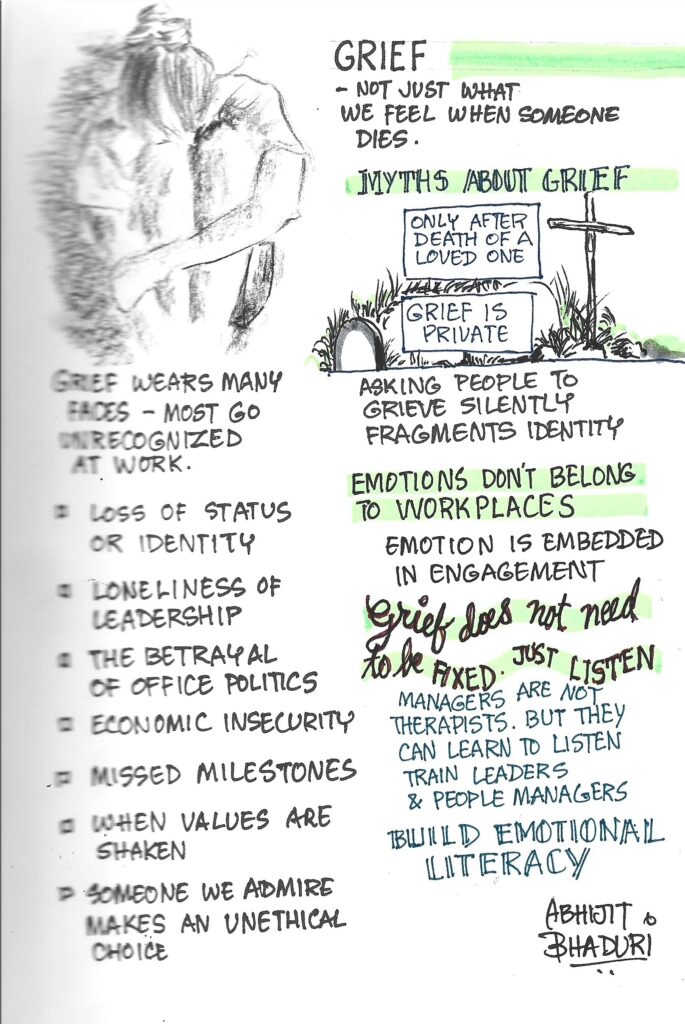 GRIEF
- NOT JUST WHAT
WE FEEL WHEN SOMEONE
DIES.
MYTHS ABOUT GRIEF
ONLY AFTER
DEATH OF A
LOVED ONE
GRIEF IS
PRIVATE
ASKING PEOPLE TO
GRIEVE SILENTLY
FRAGMENTS IDENTITY
EMOTIONS DON'T BELONG
TO WORKPLACES
EMOTION IS EMBEDDED
IN ENGAGEMENT
Grief does not need
to be FIXED. JUST LISTEN
MANAGERS ARE NOT
THERAPISTS. BUT THEY
CAN LEARN TO LISTEN
TRAIN LEADERS
& PEOPLE MANAGERS
BUILD EMOTIONAL
LITERACY
GRIEF WEARS MANY
FACES - MOST GO
UNRECOGNIZED
AT WORK.
LOSS OF STATUS
OR IDENTITY
LONELINESS OF
LEADERSHIP
THE BETRAYAL
OF OFFICE POLITICS
ECONOMIC INSECURITY
MISSED MILESTONES
WHEN VALUES ARE
SHAKEN
SOMEONE WE ADMIRE
MAKES AN UNETHICAL
CHOICE
ABHIJIT
BHADURI